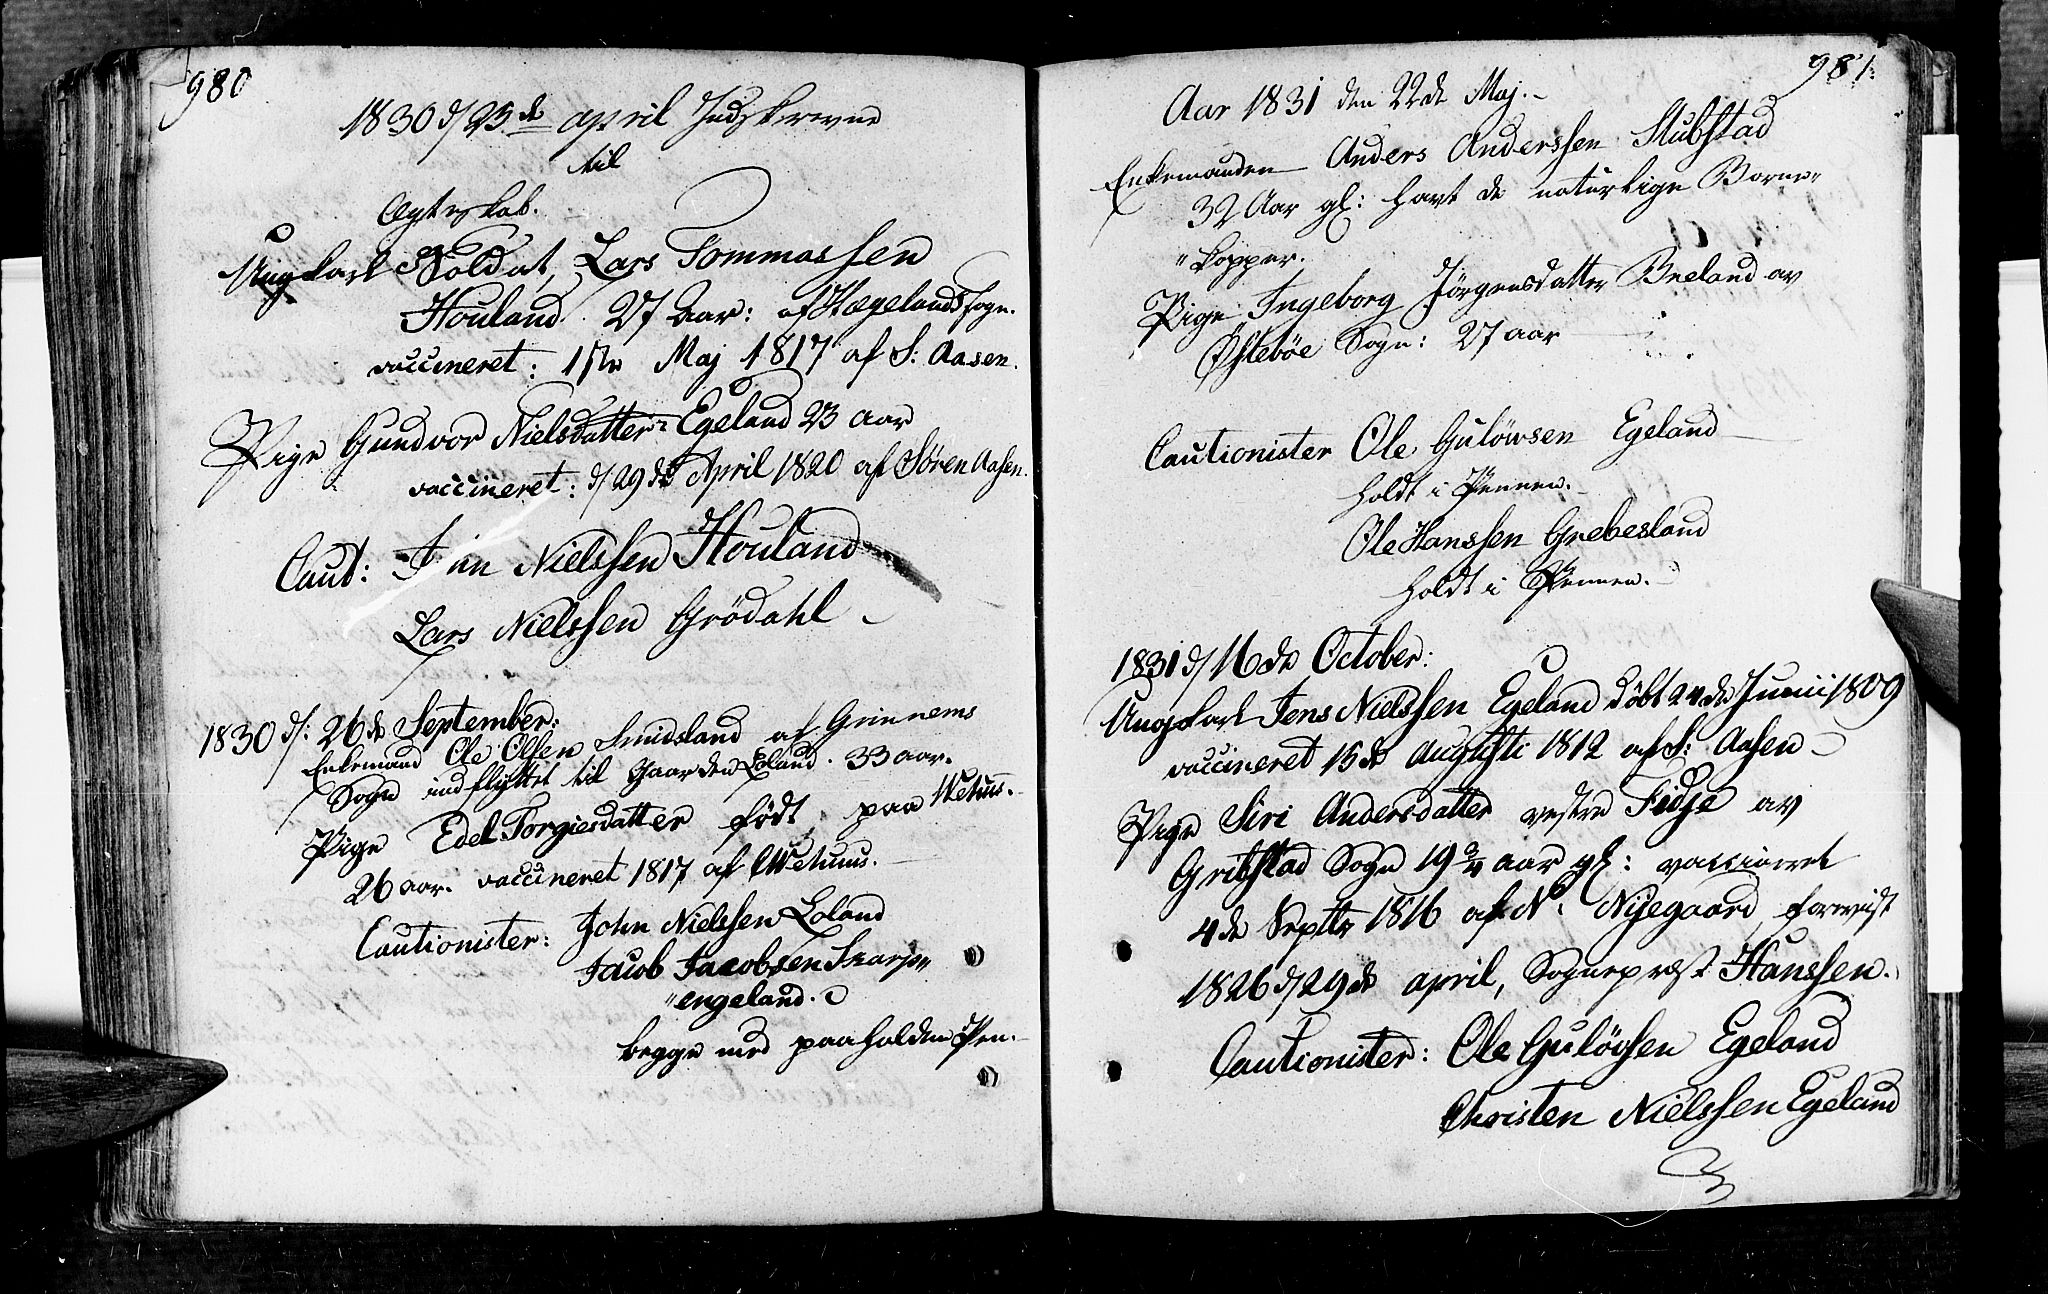 980
1830 d/ 25de april Indskrevne
til
Ægteskab.
Ungkarl Soldat, Lars Tommassen
Houland. 27 Aar: af Hægelands sogn.
vaccineret: 17de Maj 1817 af S: Aasen.
Pige Gundvor Nielsdatter Egeland 23 aar
vaccineret: d/ 29de April 1820 af Sören Aasen.
Caut: Nielssen Houland
Lars Nielssen Grödahl
1830 d/: 26de September:
Enkemand Ole Olsen Smidsland af Grinnems
Sogn indflyttet til Gaarden Loland. 33 aar.
Pige Edel Torgiesdatter födt paa Wetuus.
26 aar. vaccineret 1817 af Wetuus.
Cautionister: John Nielssen Loland
Jacob Jacobsen Skarp„
„engeland.
begge med paaholden Pen.
981.
Aar 1831 den 22de Maj.
Enkemanden Anders Anderssen Stubstad
32 Aar gl: havt de naturlige Borne„
„kopper.
Pige Ingeborg Jörgensdatter Breland av
Östeböe Sogn: 27 aar
Cautionister Ole Gulöwsen Egeland
holdt i Pennen.
Ole Hanssen Grebesland
holdt i Pennen.
1831 d/ 16de October:
Ungkarl Jens Nielssen Egeland döbt 24de Junii 1809
vaccineret 15de Augusti 1812 af S: Aasen
Pige Siri Andersdatter vestre Fidje av
Gribstad Sogn 19 3/4 aar gl: vaccineret
4de Septbr 1816 af N. Nijegaard,
1826 d/ 29de april, Sognepræst Hanssen.
Cautionister: Ole Gulövsen Egeland
Christen Nielssen Egeland